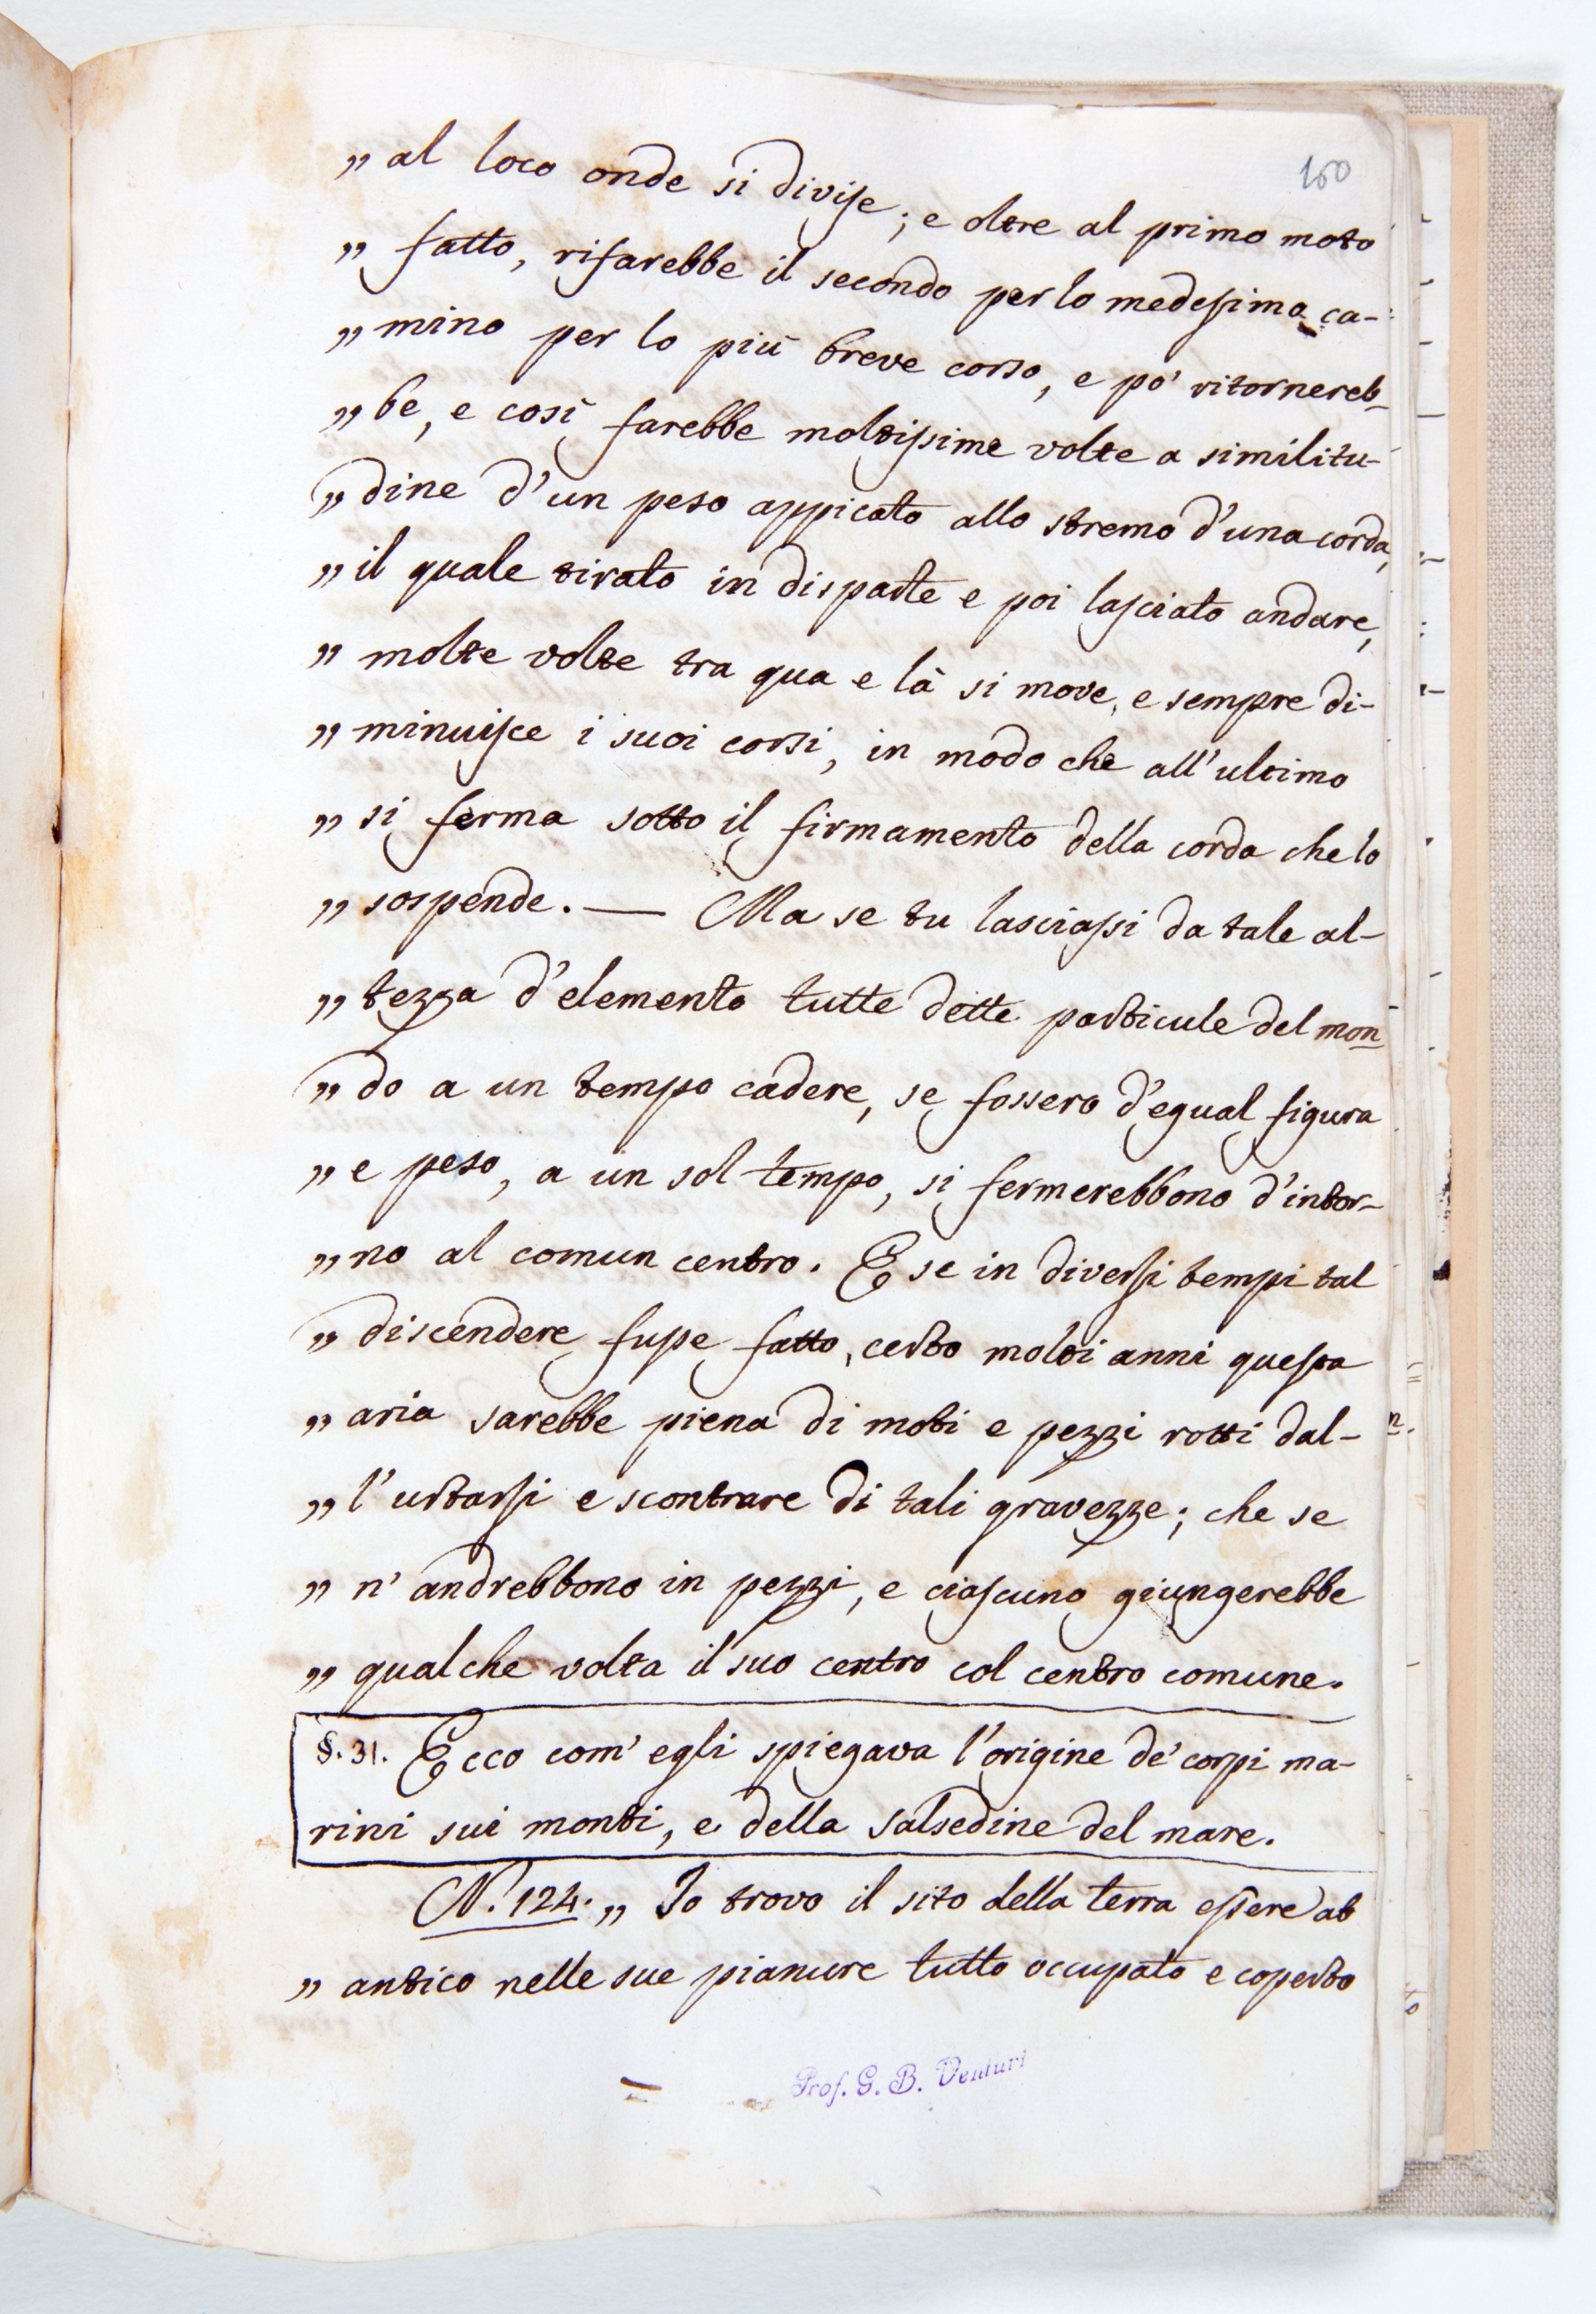 150
„ al loco onde si divise; e oltre al primo moto
„ fatto, rifarebbe il secondo per lo medesimo ca-
„ mino per lo più breve corso, e po' ritornereb-
„ be, e così farebbe moltissime volte a similitu-
„ dine d'un peso appicato allo stremo d'una corda,
„ il quale tirato in disparte e poi lasciato andare,
„ molte volte tra qua e là si move, e sempre di-
„ minuisce i suoi corsi, in modo che all'ultimo
„ si ferma sotto il firmamento della corda che lo
„ sospende. — Ma se tu lasciassi da tale al-
„ tezza d'elemento tutte dette particule del mon-
„ do a un tempo cadere, se fossero d'egual figura
„ e peso, a un sol tempo, si fermerebbono d'intor-
„ no al comun centro. E se in diversi tempi tal
„ discendere fusse fatto, certo molti anni questa
„ aria sarebbe piena di moti e pezzi rotti dal-
„ l'urtarsi e scontrare di tali gravezze; che se
„ n'andrebbono in pezzi, e ciascuno giungerebbe
„ qualche volta il suo centro col centro comune.
§. 31. Ecco com' egli spiegava l'origine de' corpi ma-
rini sui monti, e della salsedine del mare.
N. 124. „ Io trovo il sito della terra essere ab
„ antico nelle sue pianure tutto occupato e coperto
Prof. G. B. Venturi